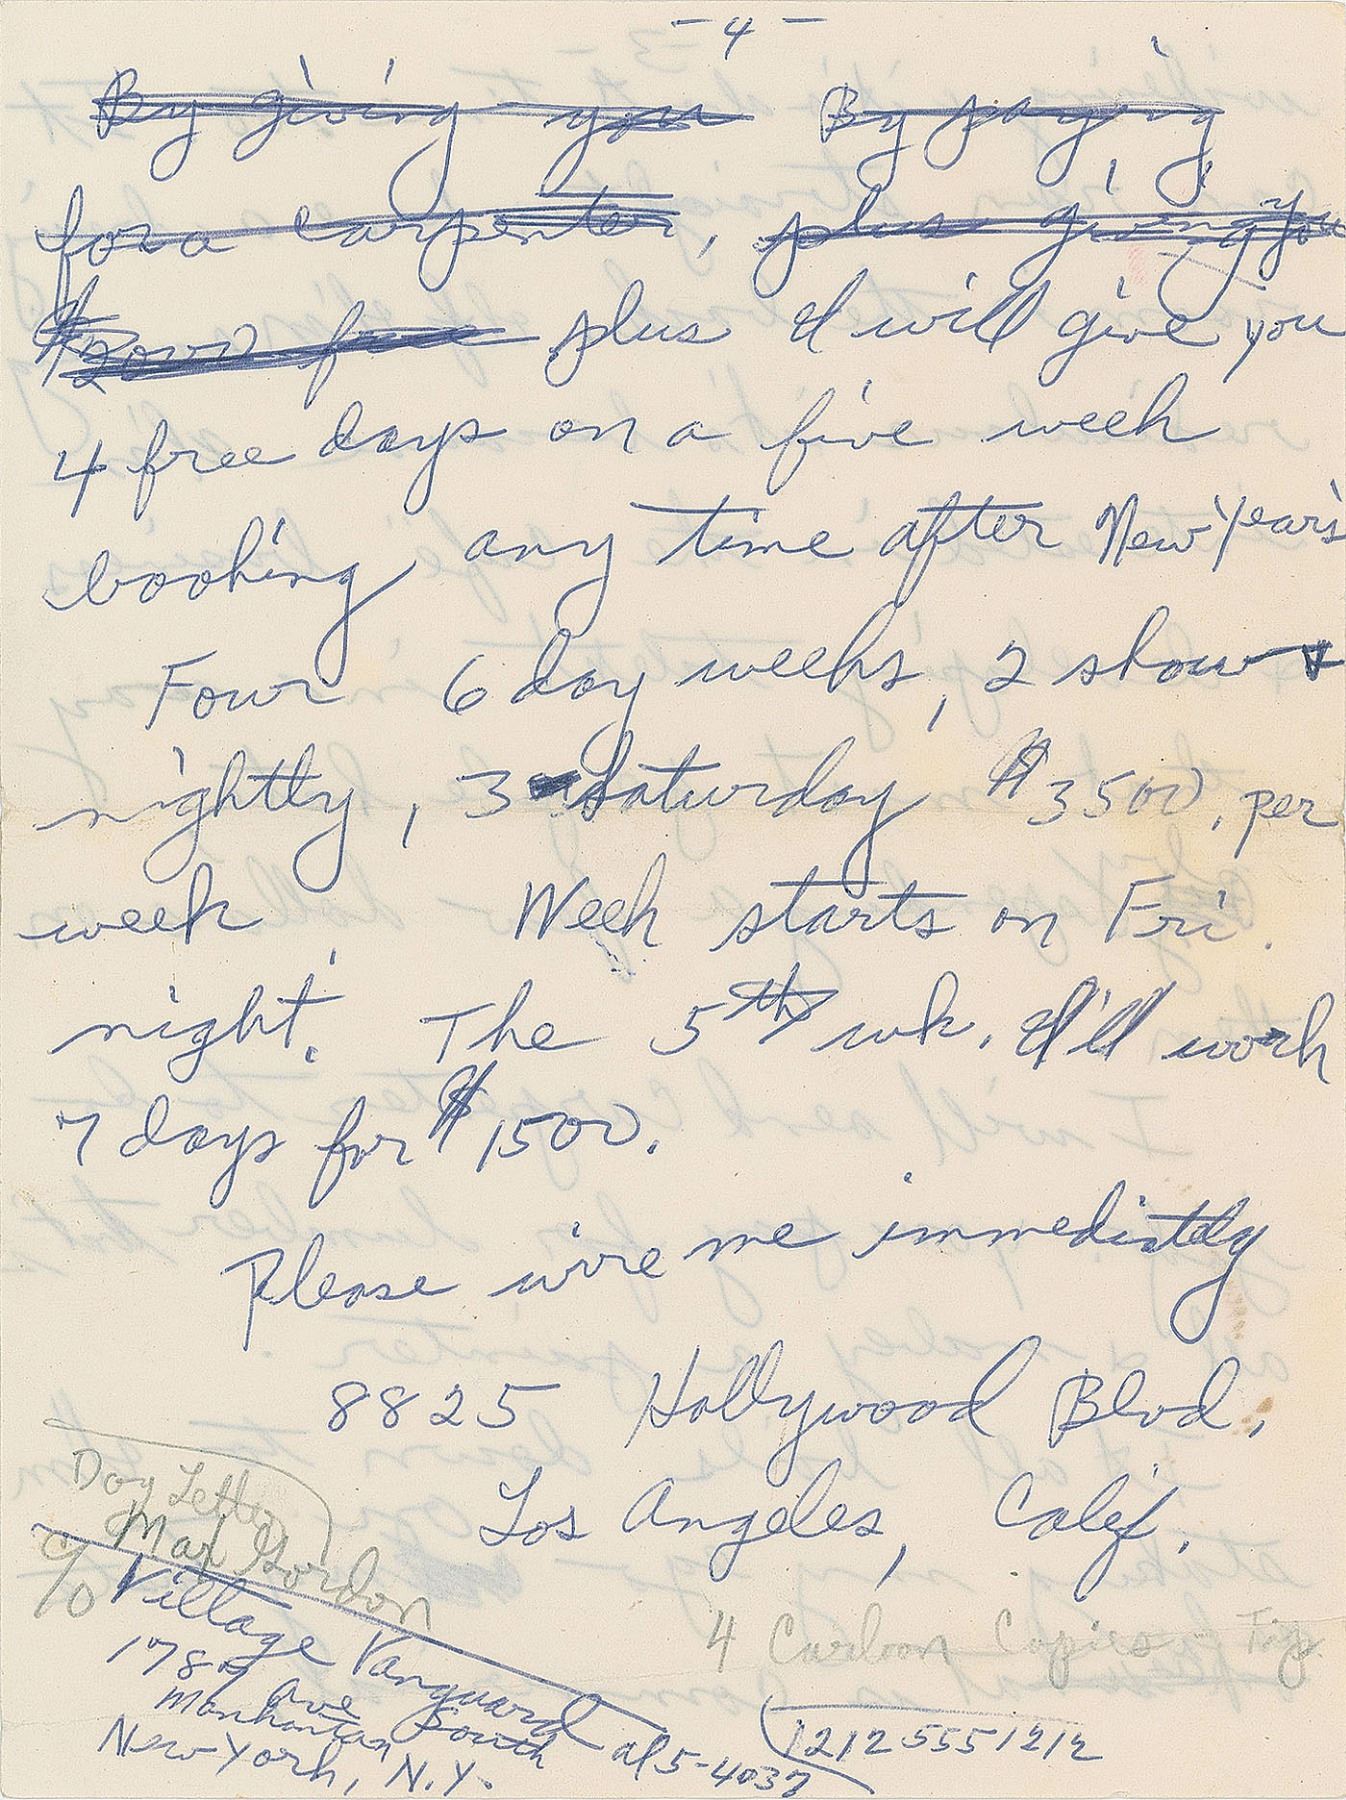 - 4 -
By giving you By paying
for a carpenter, plus giving you
$2000 free plus I will give you
4 free days on a five week
booking any time after New Year's
Four 6 day weeks, 2 shows
nightly, 3 Saturday $3500. per
week. Week starts on Fri.
night. The 5th wk. I'll work
7 days for $1500.
Please wire me immediatly
8825 Hollywood Blvd.
Los Angeles, Calif.
Day Letter
Max Gordon
c/o Village Vanguard
178 7 Ave
Manhattan South
New York, N.Y.
al 5-4037
4 Carbon Copies -
12125551212